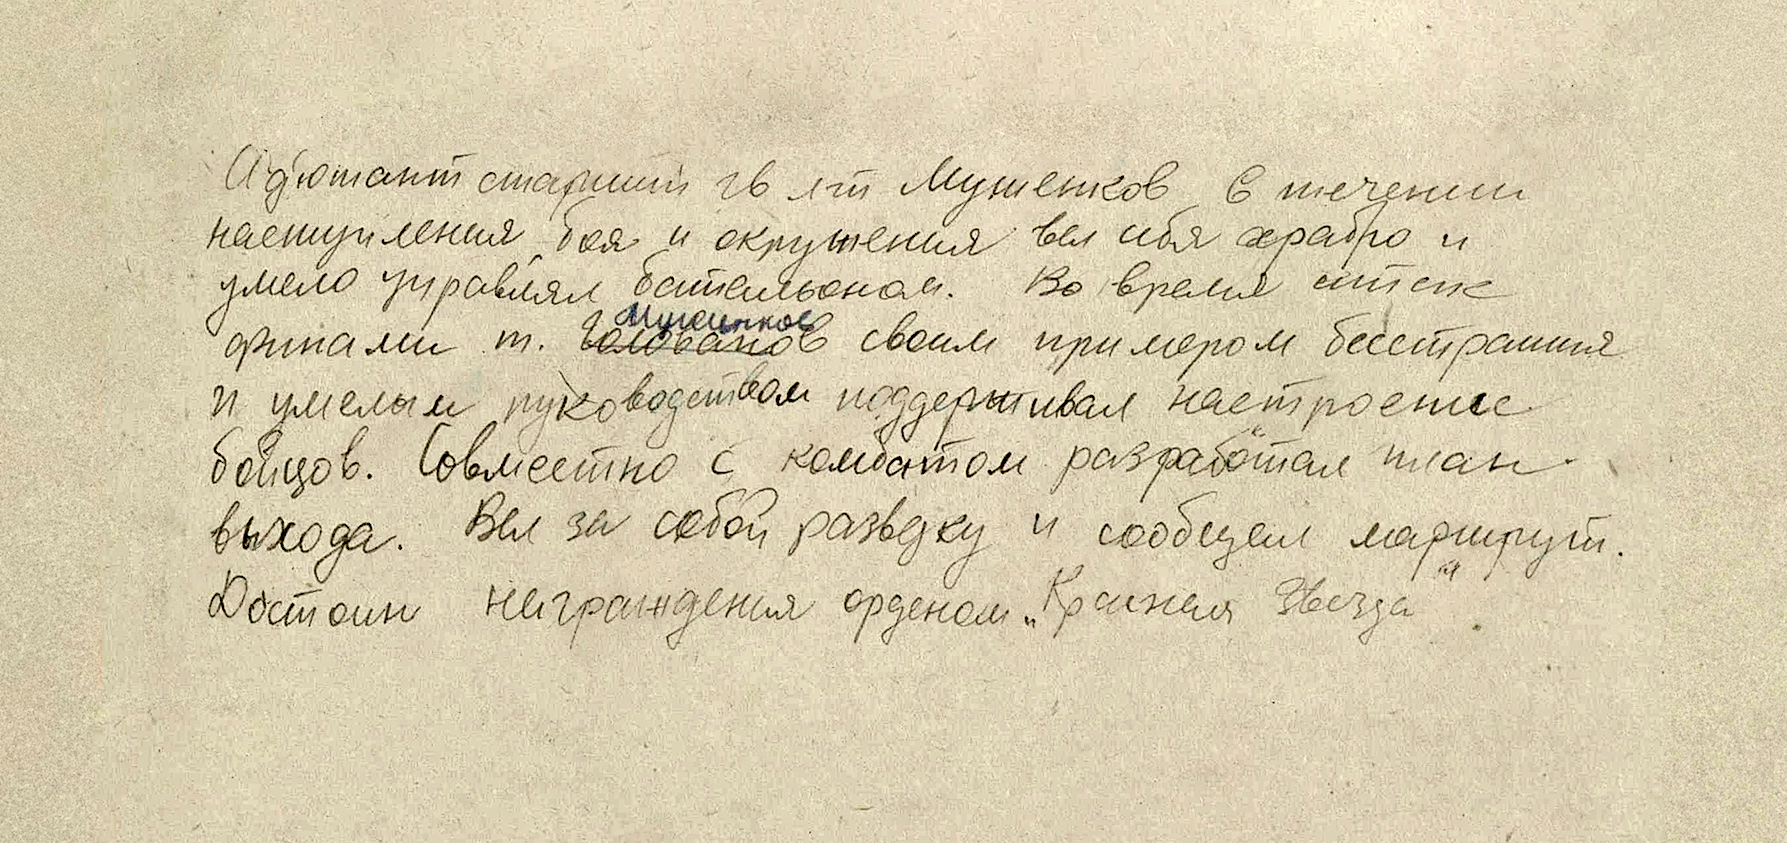 Адъютант старший гв л-т Мушенков в течении
наступления, боя и окружения вел себя храбро и
умело управлял батальоном. Во время атак
финами т. Голованов Мушенков своим примером бесстрашия
и умелым руководством поддерживал настроение
бойцов. Совместно с комбатом разработал план
выхода. Вел за собой разведку и сообщал маршрут.
Достоин награждения орденом „Красная Звезда"